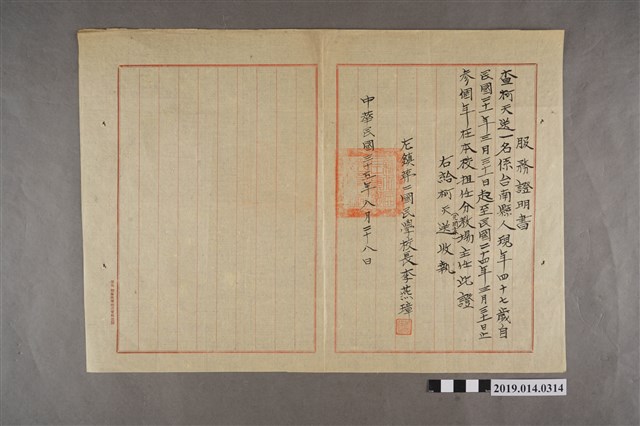 服務證明書
查柯天送一名係台南縣人現年四十七歲自
民國三十一年三月三十一日起至民國三十四年三月三十一日止
參個年在本校担任分教場主任此證
右給柯天送收執
左鎮第二國民學校長李燕璋
中華民國三十五年八月二十八日
2019.014.0314